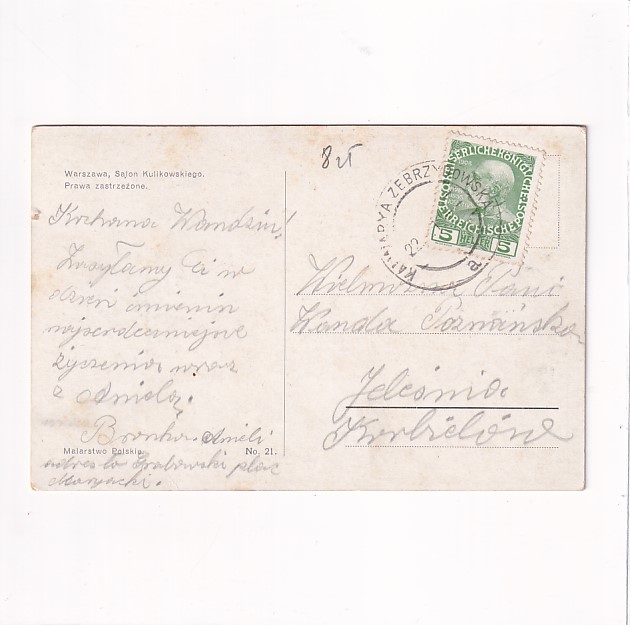 8 zł
Warszawa, Salon Kulikowskiego.
Prawa zastrzeżone.
Kochana Wandziu!
Zasyłamy Ci w
dzień imienin
najserdeczniejsze
życzenia wraz
z Anielą.
Bronka. Anieli
adres to Grabowski plac
Maryacki.
Malarstwo Polskie.
No. 21.
KAISERLICHE KÖNIGLICHE
ÖSTERREICHISCHE POST
1908
5 HELLER 5
KALWARYA ZEBRZYDOWSKA
Wielmożna Pani
Wanda Poznańska
Jeleśnia
Korbielów